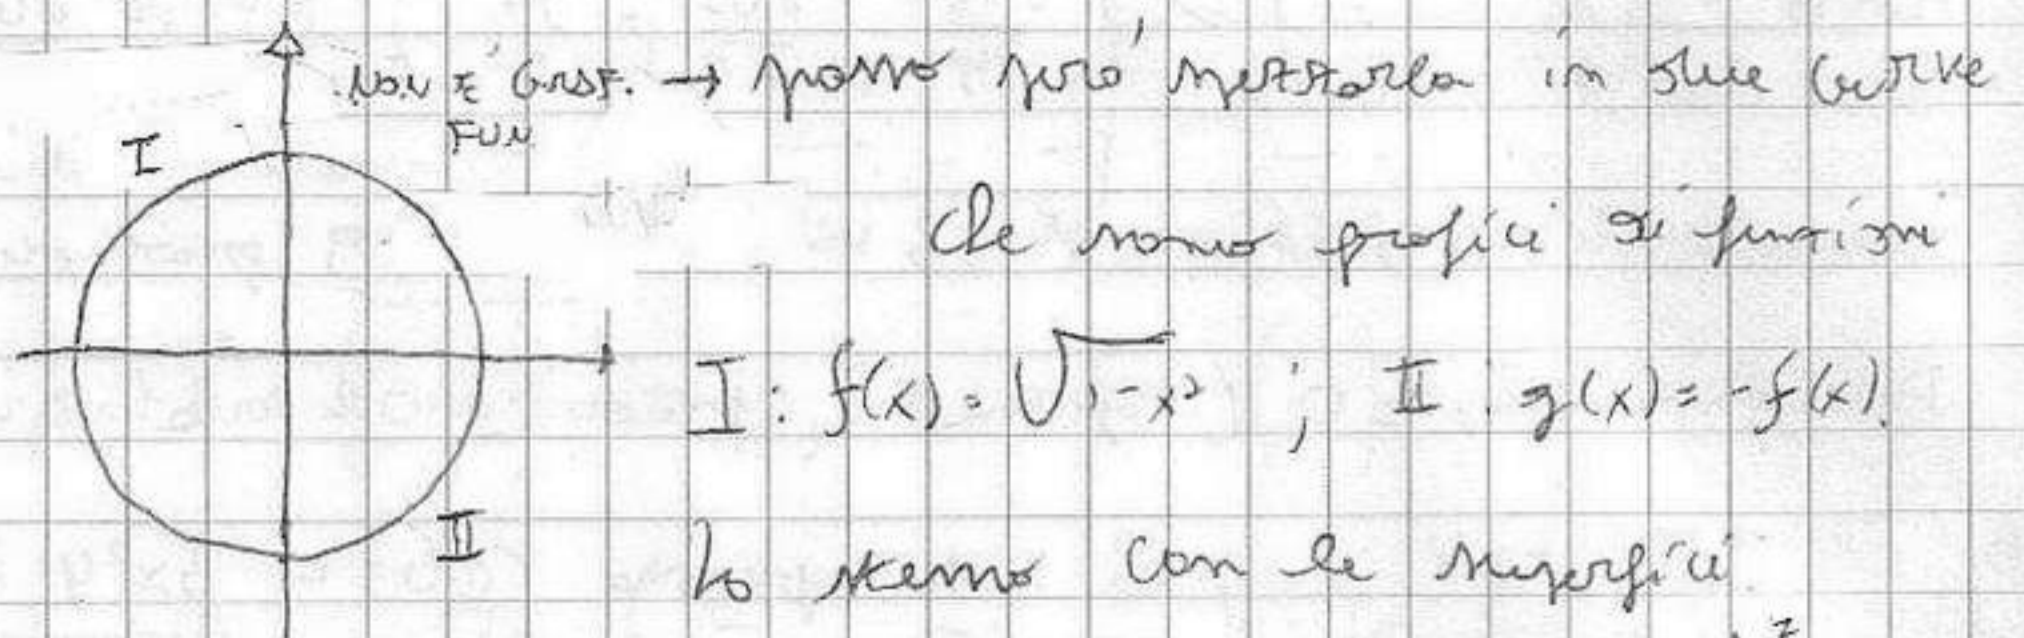 NON È GRAF. → posso però spezzarla in due curve
FUN
I
che sono grafici di funzioni
I: f(x) = √1-x² ; II: g(x) = -f(x).
II
Lo stesso con le superfici.
z